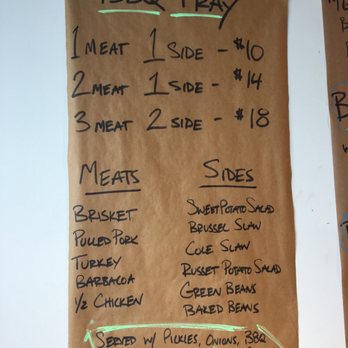 BBQ TRAY
1 MEAT 1 SIDE - $10
2 MEAT 1 SIDE - $14
3 MEAT 2 SIDE - $18
MEATS
BRISKET
PULLED PORK
TURKEY
BARBACOA
1/2 CHICKEN
SIDES
SWEET POTATO SALAD
BRUSSEL SLAW
COLE SLAW
RUSSET POTATO SALAD
GREEN BEANS
BAKED BEANS
SERVED W/ PICKLES, ONIONS, BBQ